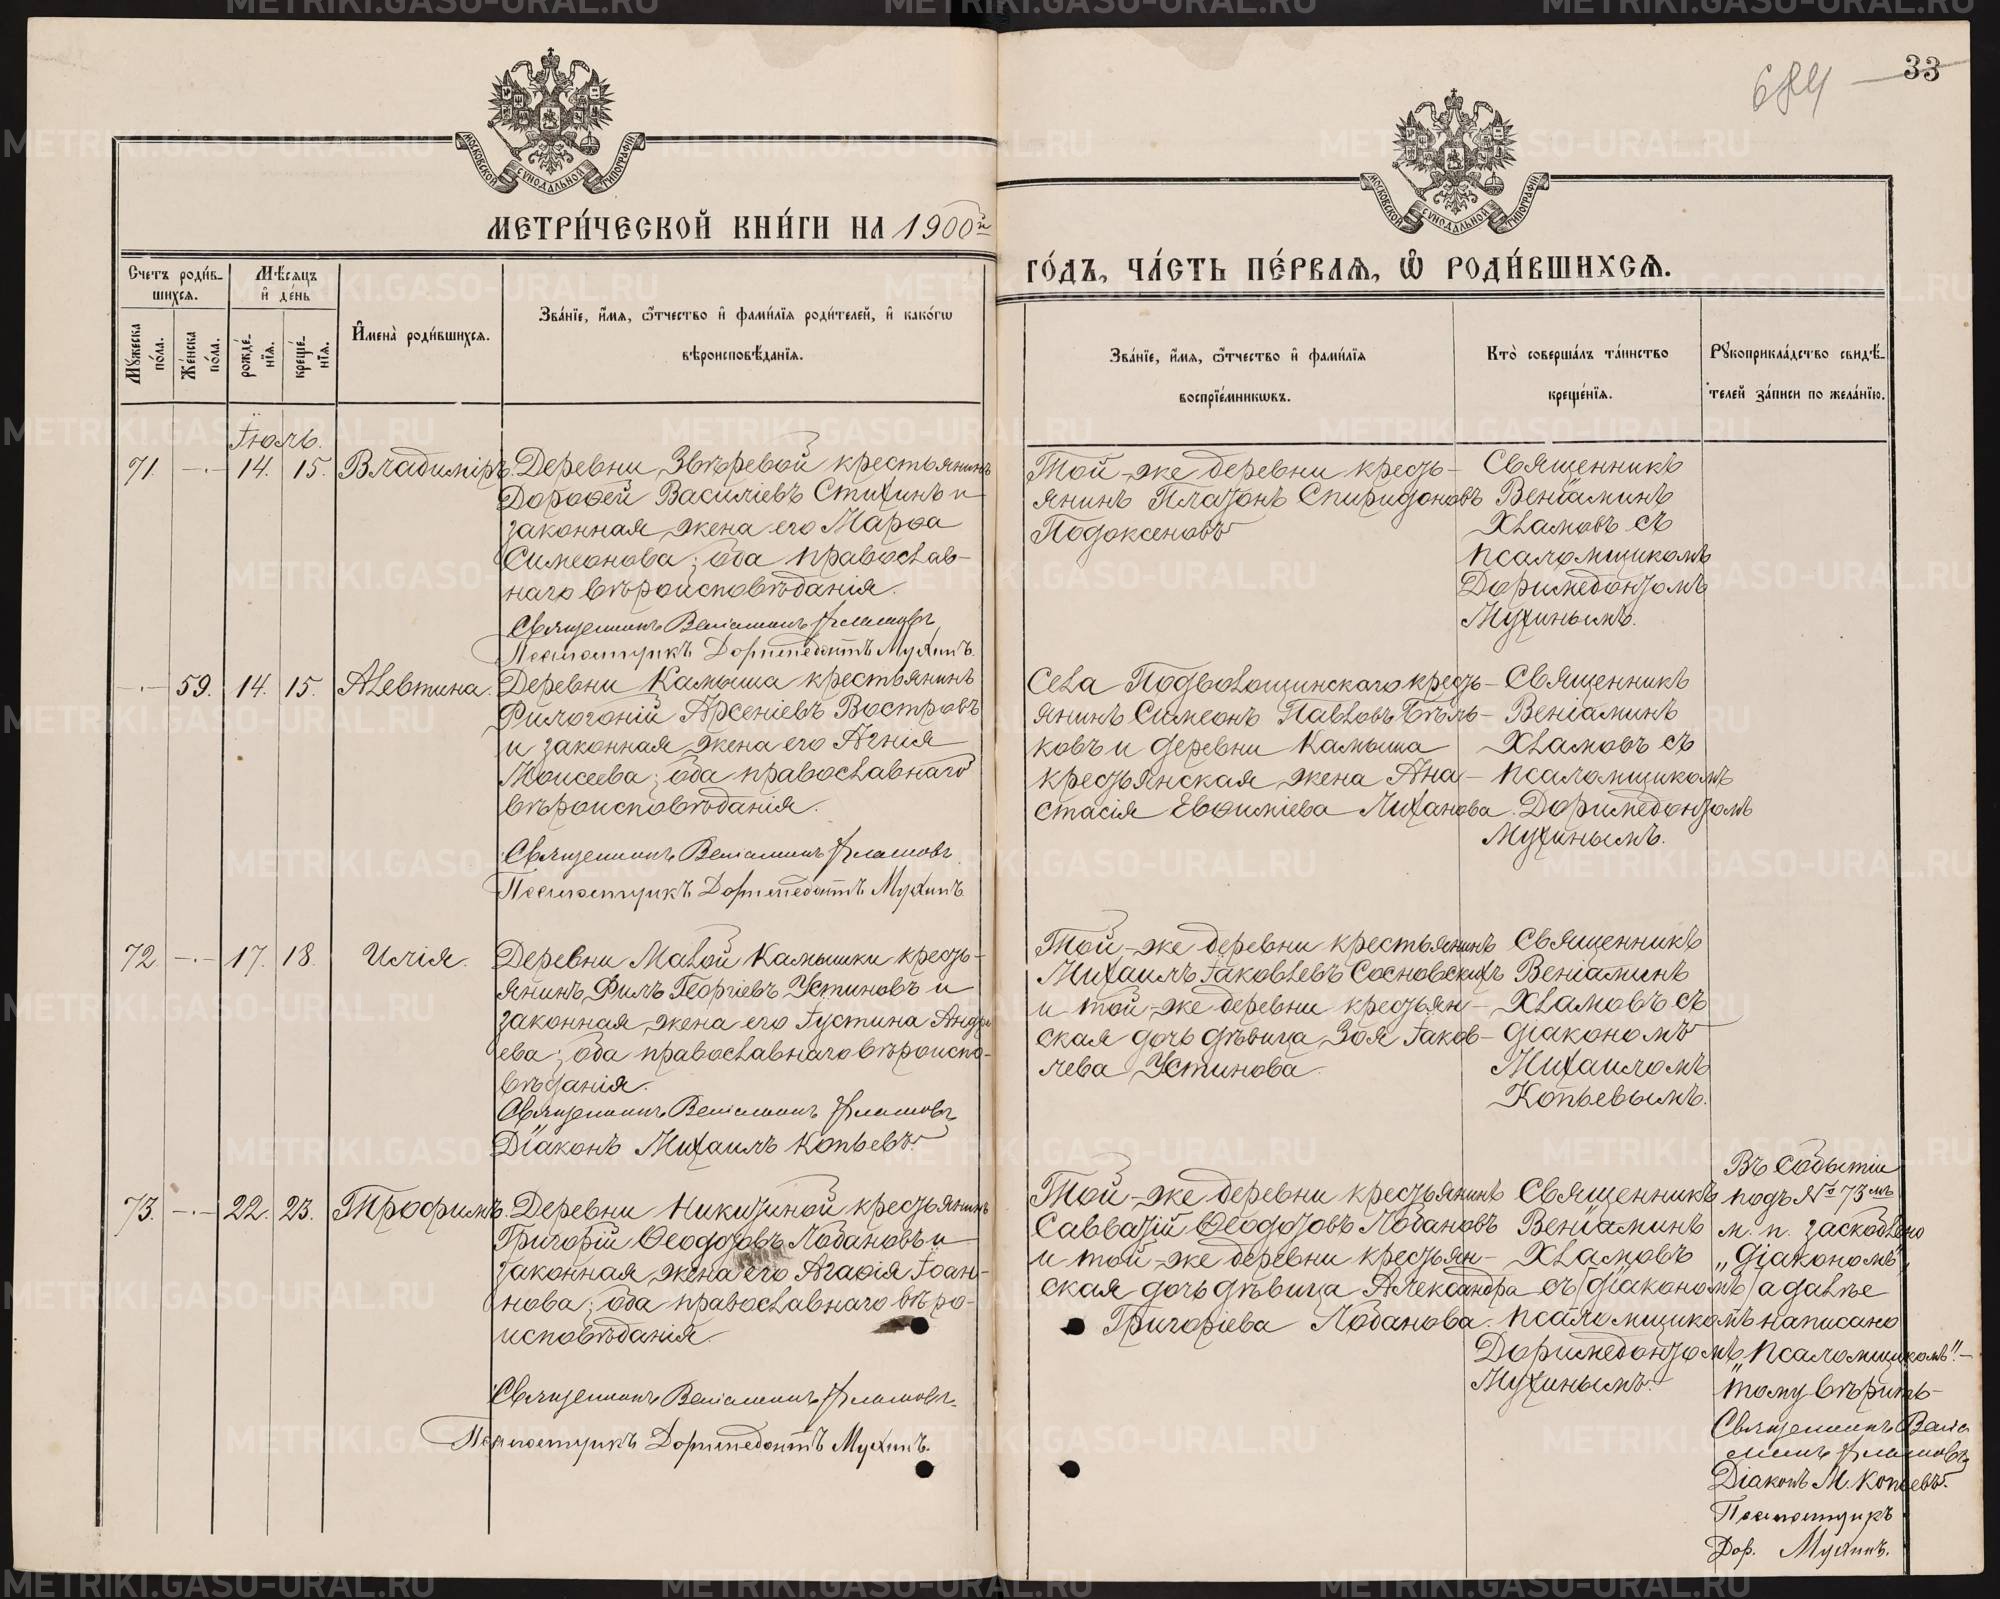 33
684
МОСКОВСКОЙ СѴНОДАЛЬНОЙ ТИПОГРАФІИ
МОСКОВСКОЙ СѴНОДАЛЬНОЙ ТИПОГРАФІИ
МЕТРИ́ЧЕСКОЙ КНИ́ГИ НА 1900й
ГО́ДЪ, ЧА́СТЬ ПЕ́РВАѦ, Ѽ РОДИ́ВШИХСѦ.
Счетъ роди́в-
шихсѧ.
Мѣ́сѧцъ
и҆ де́нь
Мꙋ́жеска
по́ла.
Же́нска
по́ла.
рожде́-
нїѧ.
креще́-
нїѧ.
И҆мена̀ роди́вшихсѧ.
Зва́нїе, и҆́мѧ, ѻ҆́тчество и҆ фами́лїѧ роди́телей, и҆ како́гѡ
вѣроисповѣ́данїѧ.
Зва́нїе, и҆́мѧ, ѻ҆́тчество и҆ фами́лїѧ
воспрїе́мникѡвъ.
Кто̀ соверша́лъ та́инство
креще́нїѧ.
Рꙋкоприкла́дство свидѣ́-
телей за́писи по жела́нїю.
Іюль.
71. —.— 14. 15. Владиміръ.
Деревни Звѣревой крестьянинъ
Дорофей Василіевъ Стихинъ и
законная жена его Марѳа
Симеонова; оба православ-
наго вѣроисповѣданія.
Священникъ Веніаминъ Хламовъ
Псаломщикъ Доримедонтъ Мухинъ.
Той-же деревни кресть-
янинъ Платонъ Спиридоновъ
Подоксеновъ
Священникъ
Веніаминъ
Хламовъ съ
псаломщикомъ
Доримедонтомъ
Мухинымъ.
—.— 59. 14. 15. Алевтина.
Деревни Камыша крестьянинъ
Филогоній Арсеніевъ Востровъ
и законная жена его Агнія
Моисеева; оба православнаго
вѣроисповѣданія.
Священникъ Веніаминъ Хламовъ
Псаломщикъ Доримедонтъ Мухинъ.
Села Подволошинскаго кресть-
янинъ Симеонъ Павловъ Бѣль-
ковъ и деревни Камыша
крестьянская жена Ана-
стасія Евѳиміева Лиханова.
Священникъ
Веніаминъ
Хламовъ съ
псаломщикомъ
Доримедонтомъ
Мухинымъ.
72 —.— 17. 18. Илія.
Деревни Малой Камышки кресть-
янинъ Филъ Георгіевъ Устиновъ и
законная жена его Іустина Андре
ева; оба православнаго вѣроиспо-
вѣданія.
Священникъ Веніаминъ Хламовъ
Діаконъ Михаилъ Копьевъ
Той-же деревни крестьянинъ
Михаилъ Іаковлевъ Сосновскихъ
и той-же деревни крестьян-
ская дочь дѣвица Зоя Іаков-
лева Устинова.
Священникъ
Веніаминъ
Хламовъ съ
діакономъ
Михаиломъ
Копьевымъ.
73. —.— 22. 23. Трофимъ.
Деревни Никитиной крестьянинъ
Григорій Ѳеодотовъ Лобановъ и
законная жена его Агаѳія Іоан-
нова; оба православнаго вѣро-
исповѣданія.
Священникъ Веніаминъ Хламовъ.
Псаломщикъ Доримедонтъ Мухинъ.
Той-же деревни крестьянинъ
Савватій Ѳеодотовъ Лобановъ
и той-же деревни крестьян-
ская дочь дѣвица Александра
Григоріева Лобанова.
Священникъ
Веніаминъ
Хламовъ
съ (діакономъ)
псаломщикомъ
Доримедонтомъ
Мухинымъ.
Въ событіи
подъ № 73мъ
м. п. заскоблено
„діакономъ",
а далѣе
написано
„псаломщикомъ".—
тому вѣрить—
Священникъ Веніа
минъ Хламовъ
Діаконъ М. Копьевъ.
Псаломщикъ
Дор. Мухинъ.
METRIKI.GASO-URAL.RU